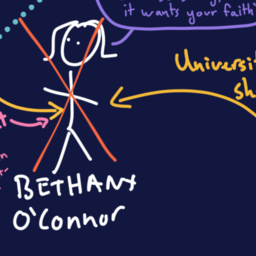 it wants your faith
Universit
sh
BETHANY
O'Connor